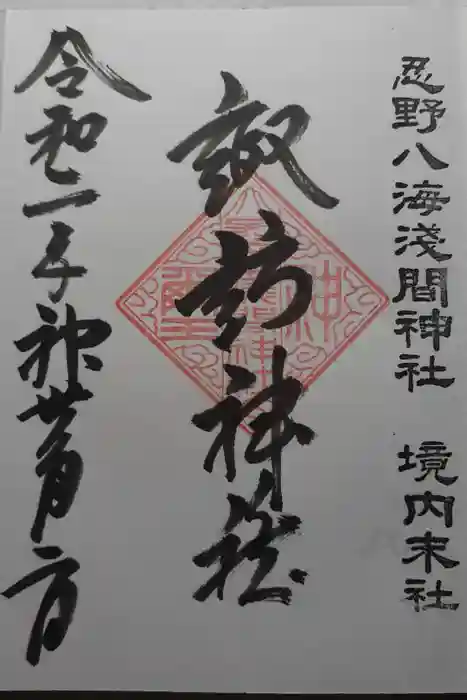 忍野八海淺間神社 境内末社
諏訪神社
令和二年神無月一日